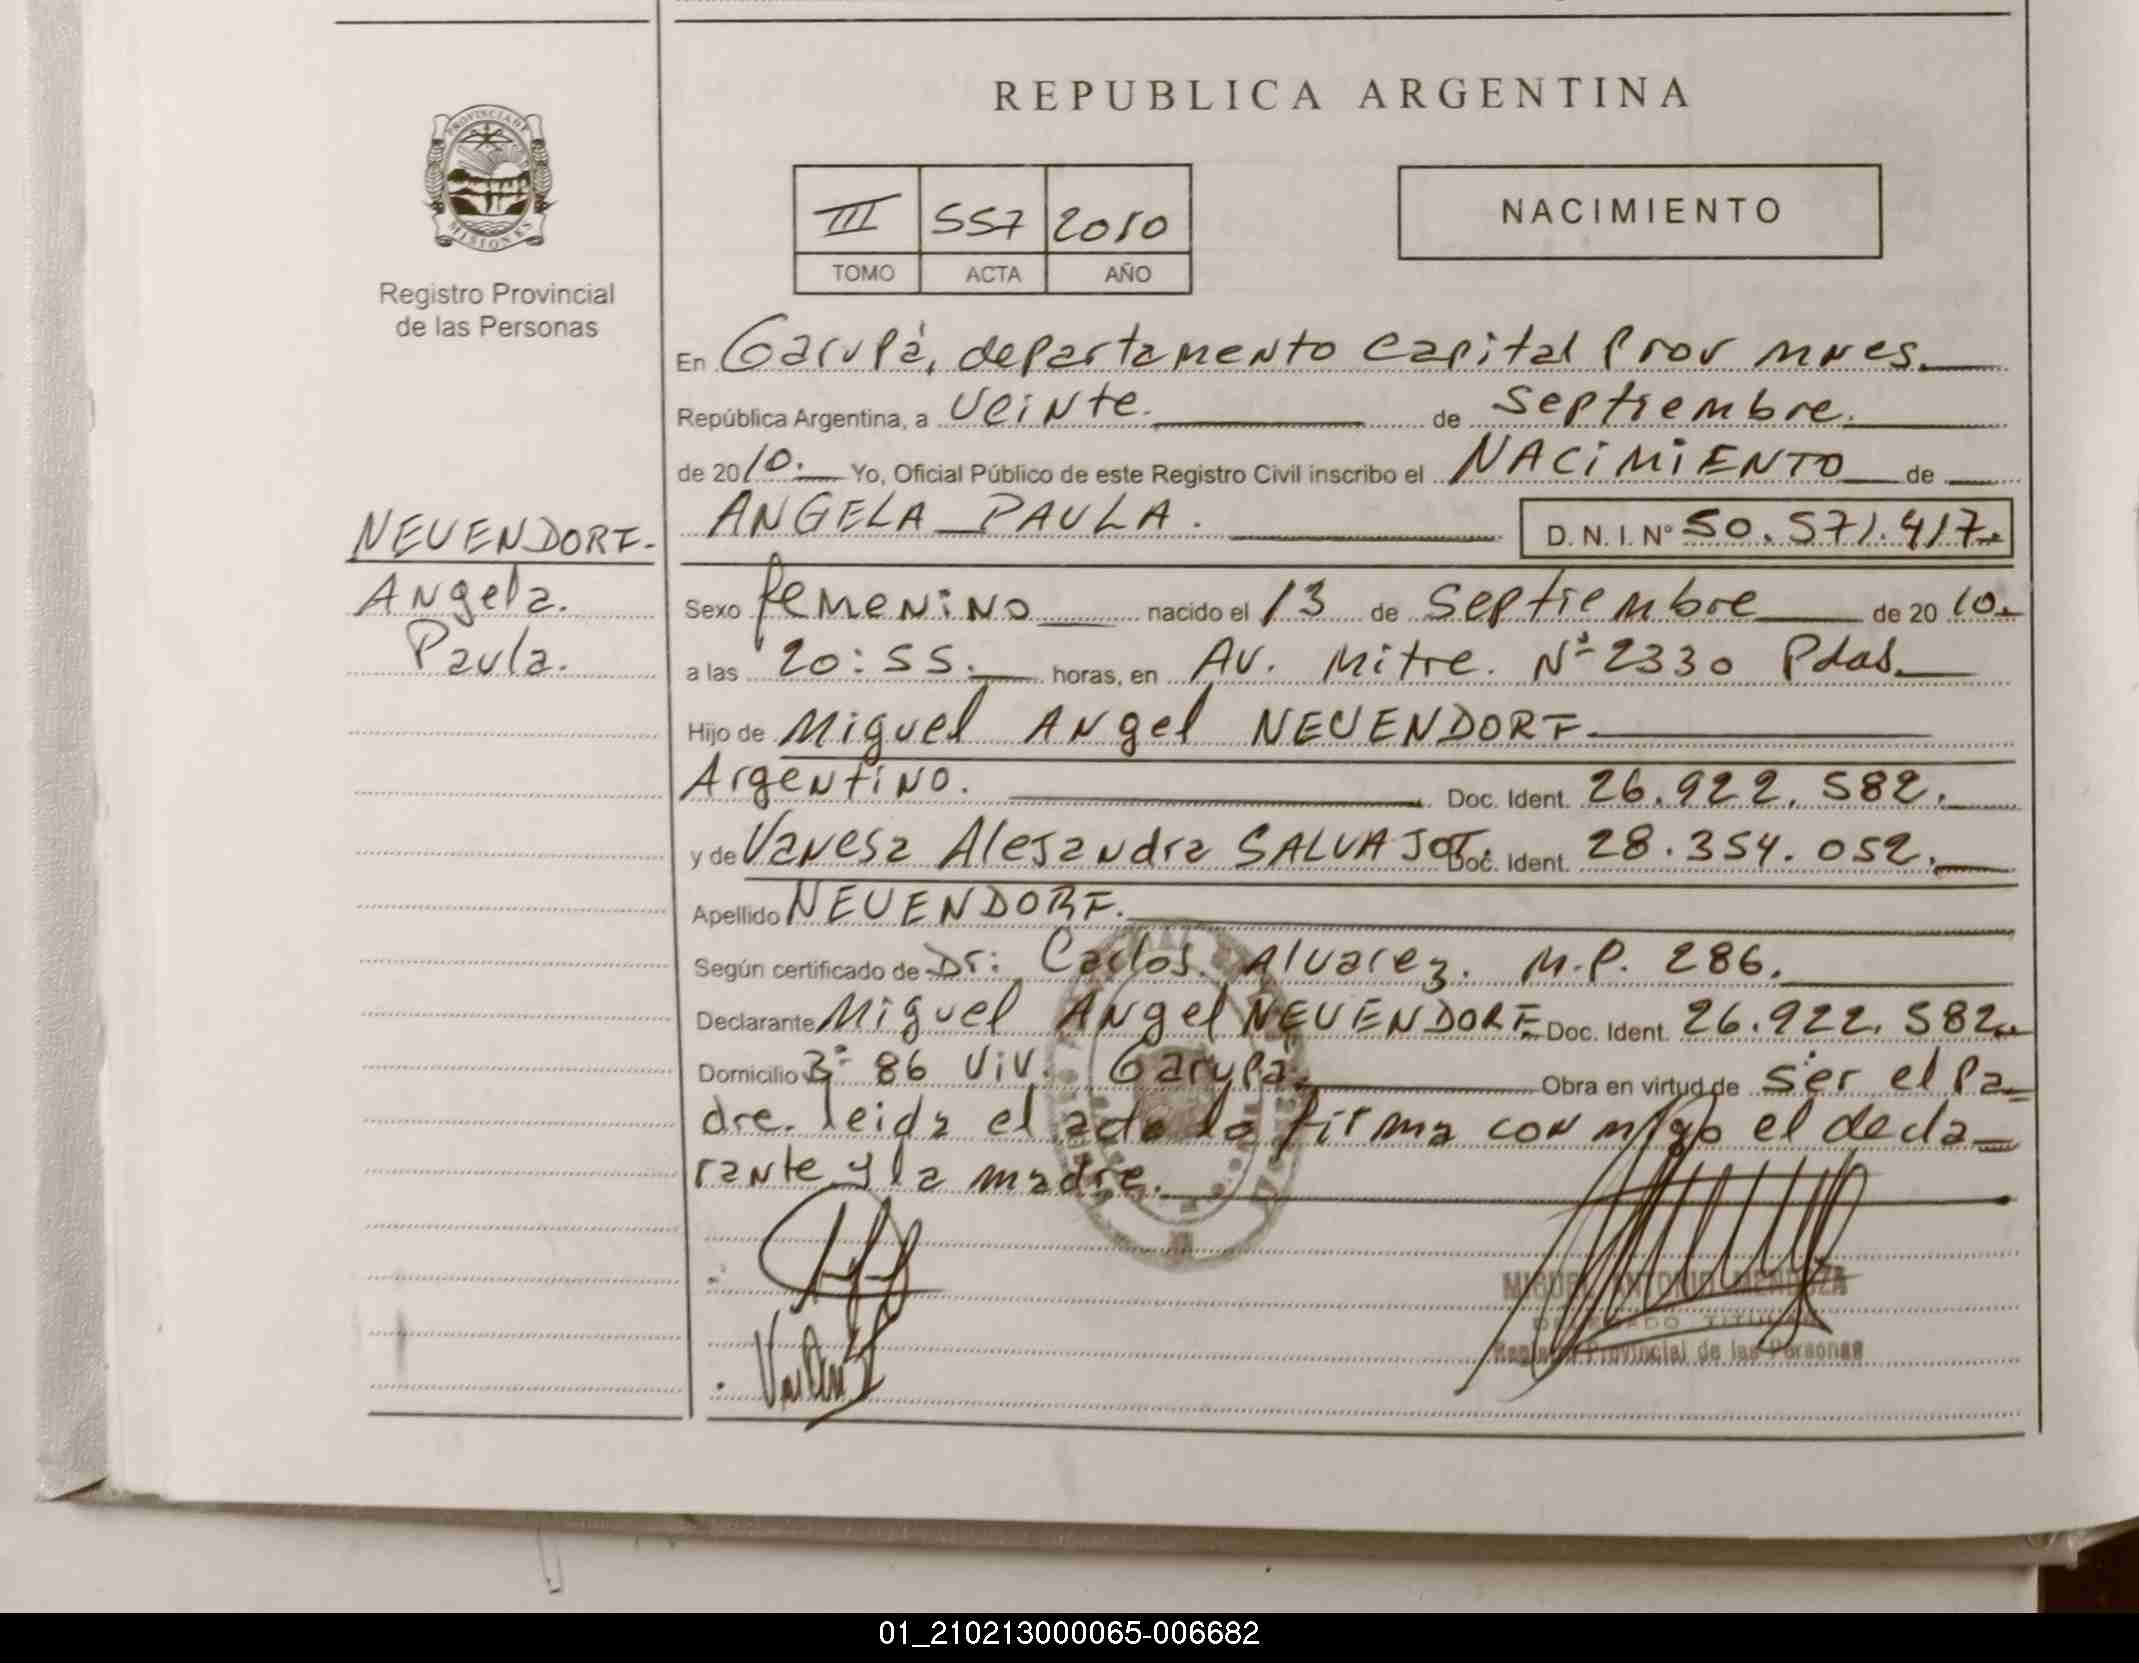 REPUBLICA ARGENTINA
PROVINCIA DE
MISIONES
Registro Provincial
de las Personas
III 557 2010
TOMO ACTA AÑO
NACIMIENTO
En Garupá, departamento Capital Prov Mnes.
República Argentina, a veinte. de Septiembre.
de 2010. Yo, Oficial Público de este Registro Civil inscribo el NACIMIENTO de
ANGELA PAULA. D. N. I. Nº 50.571.417.
NEUENDORF.
Angela.
Paula.
Sexo femenino nacido el 13 de Septiembre de 2010.
a las 20:55. horas, en Av. Mitre. Nº 2330 Pdas.
Hijo de Miguel Angel NEUENDORF.
Argentino. Doc. Ident. 26.922.582.
y de Vanesa Alejandra SALVAJOT. Doc. Ident. 28.354.052.
Apellido NEUENDORF.
Según certificado de Dr: Carlos Alvarez. M.P. 286.
Declarante Miguel Angel NEUENDORF. Doc. Ident. 26.922.582.
Domicilio Bº 86 Viv. Garupá. Obra en virtud de ser el Pa=
dre. leida el acta la firma conmigo el decla=
rante y la madre.
MIGUEL ANTONIO MENDOZA
DELEGADO TITULAR
Registro Provincial de las Personas
01_210213000065-006682